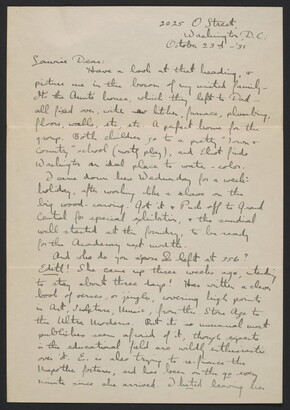 2025 O Street,
Washington D.C.
October 23d - '31
Laurie Dear:
Have a look at that heading, &
picture me in the bosom of my united family -
It's the Aunts' house, which they left to Dad -
all fixed over, with new kitchen, furnace, plumbing,
floors walls, etc, etc. A perfect home for the
group. Both children go to a pretty "Town &
Country" school (mostly play), and Eliot finds
Washington an ideal place to water-color.
I came down here Wednesday for a week's
holiday, after working like a slave on the
big wood-carving. Got it & Puck off to Grand
Central for special exhibition, & the sundial
well started at the foundry, to be ready
for the Academy next month.
And who do you spose I left at 356?
Edith! She came up three weeks ago, intending
to stay about three days! Has written a clever
book of verses, or jingles, covering high points
in Art, Sculpture, Music, from the Stone Age to
the Ultra Moderns. But it is so unusual most
publishers seem afraid of it, though experts
in the educational field are wildly enthusiastic
over it. E. is also trying to re-finance the
fortune, and has been on the go every
minute since she arrived. I hated leaving her